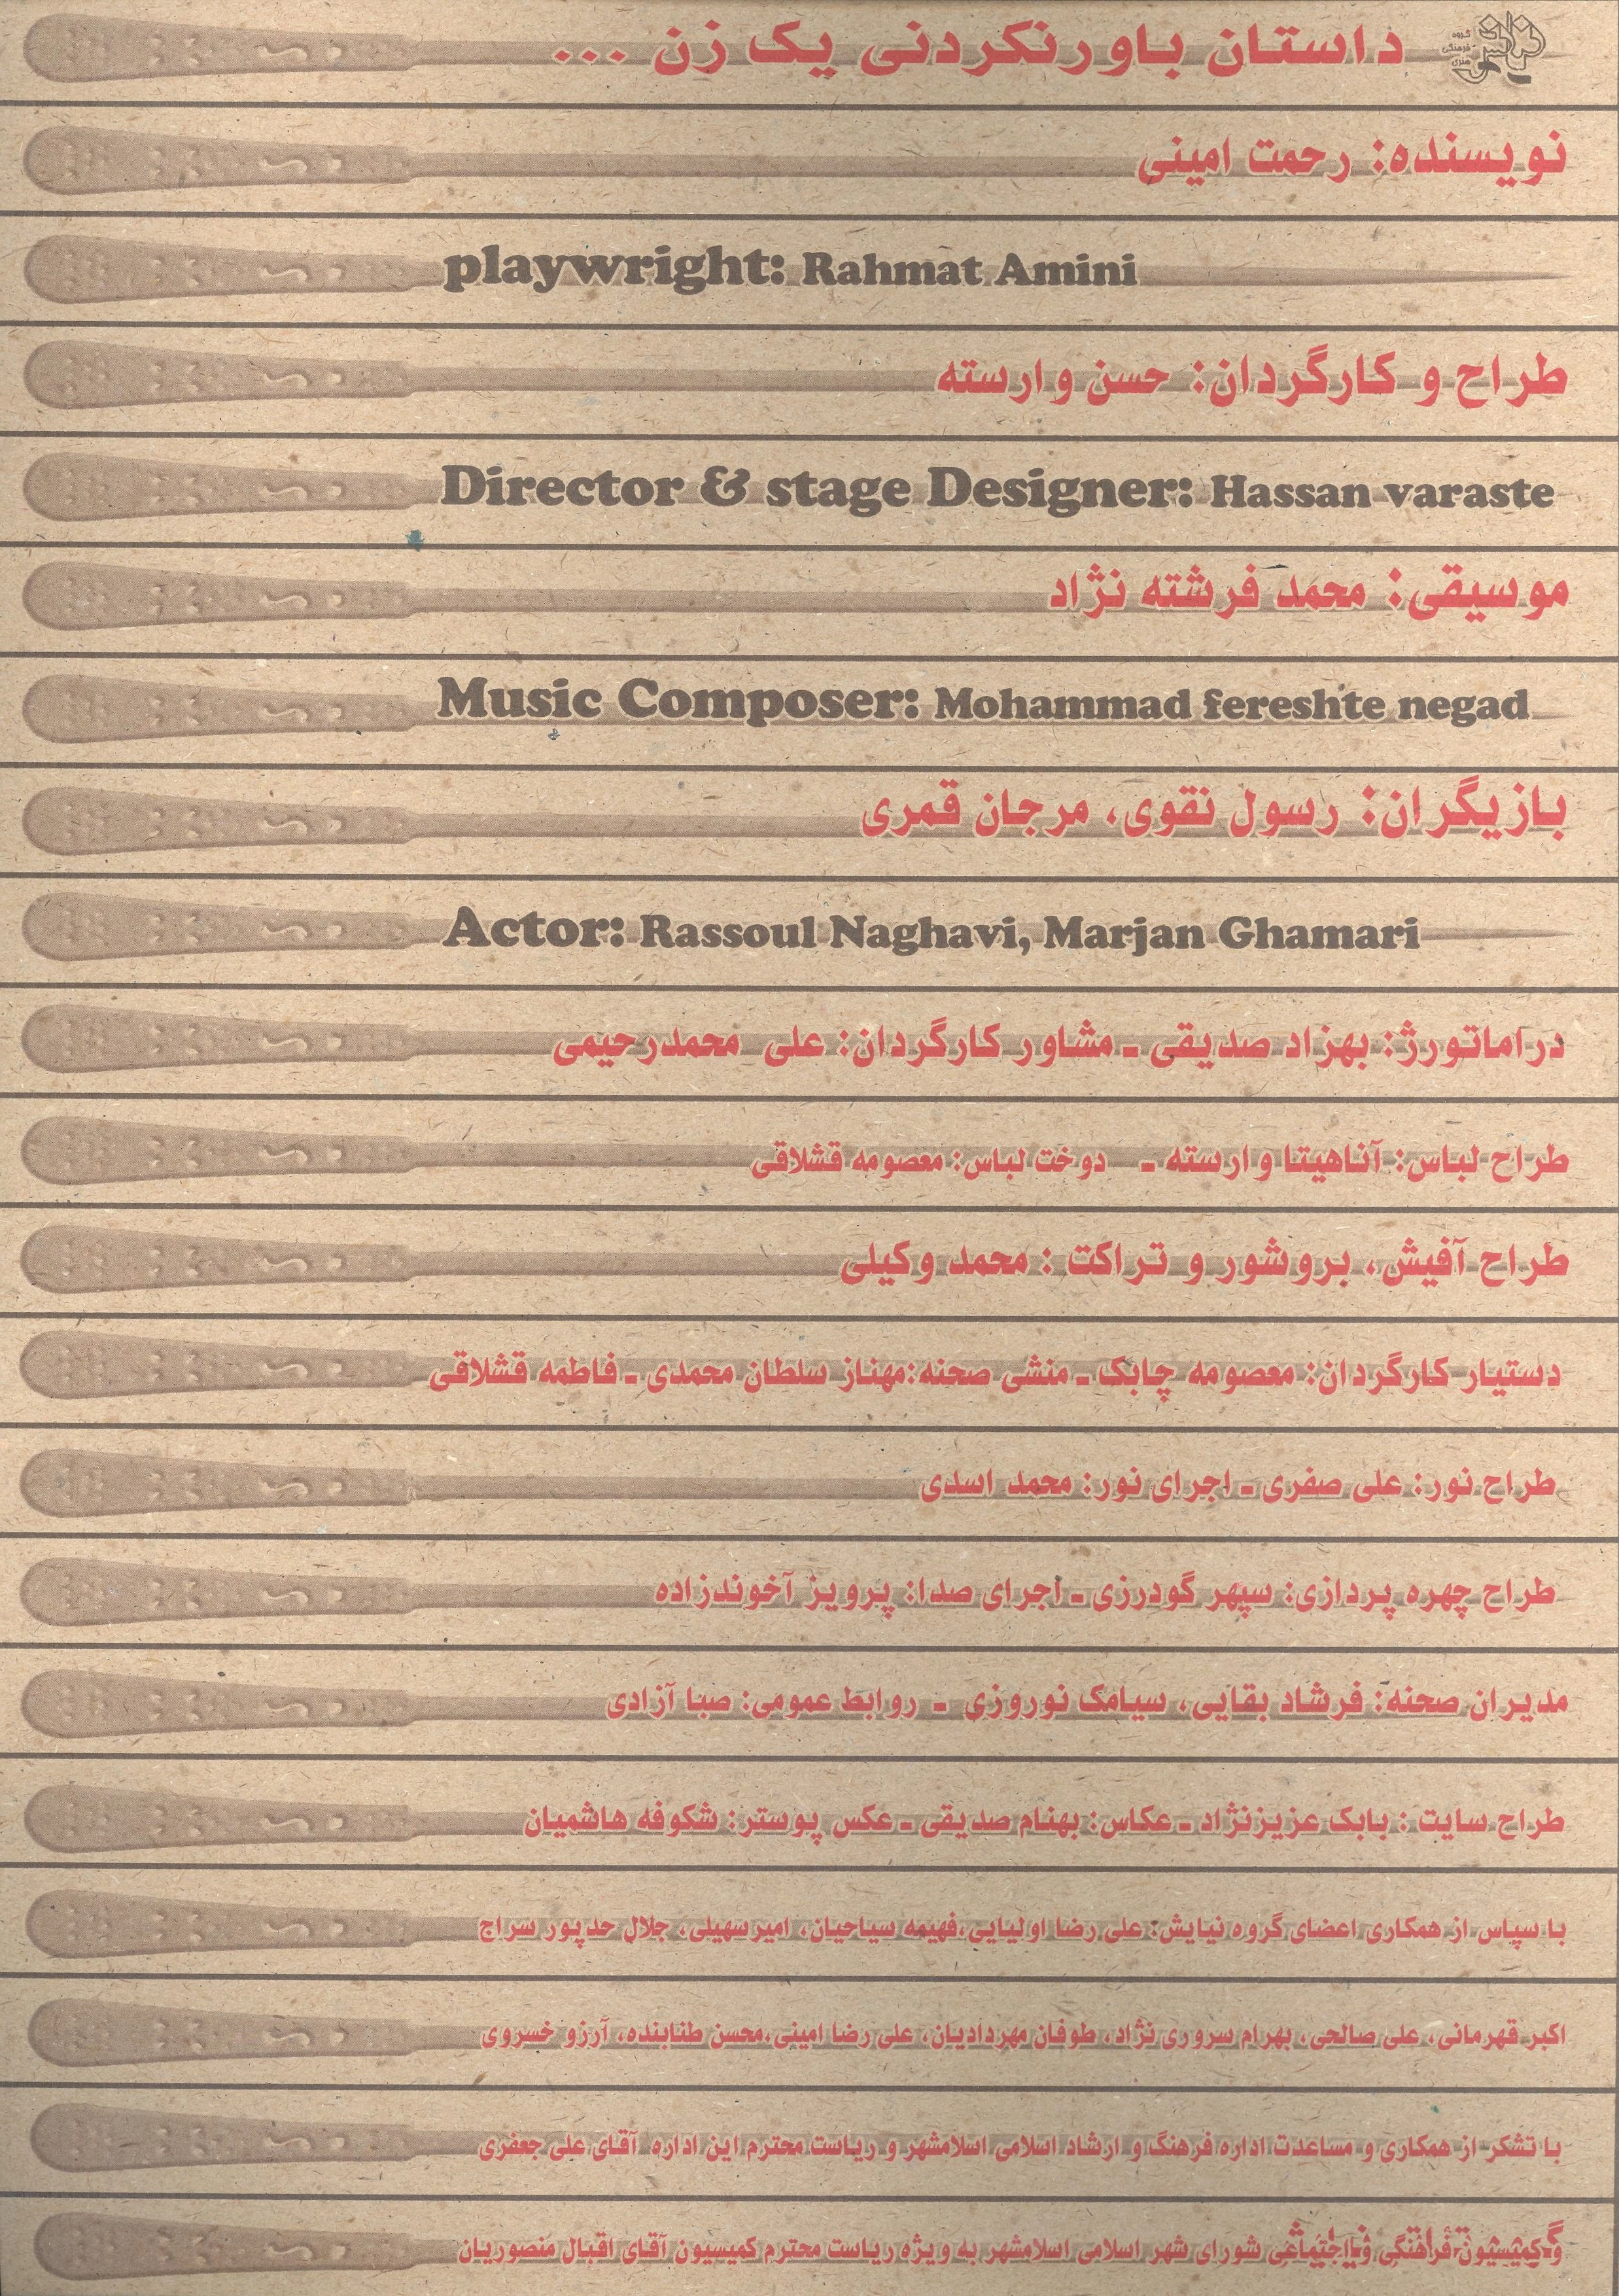 داستان باورنکردنی یک زن ...
گروه
فرهنگی
هنری
نیایش
نویسنده: رحمت امینی
playwright: Rahmat Amini
طراح و کارگردان: حسن وارسته
Director & stage Designer: Hassan varaste
موسیقی: محمد فرشته نژاد
Music Composer: Mohammad fereshte negad
بازیگران: رسول نقوی، مرجان قمری
Actor: Rassoul Naghavi, Marjan Ghamari
دراماتورژ: بهزاد صدیقی - مشاور کارگردان: علی محمدرحیمی
طراح لباس: آناهیتا وارسته - دوخت لباس: معصومه قشلاقی
طراح آفیش، بروشور و تراکت : محمد وکیلی
دستیار کارگردان: معصومه چابک - منشی صحنه:مهناز سلطان محمدی - فاطمه قشلاقی
طراح نور: علی صفری - اجرای نور: محمد اسدی
طراح چهره پردازی: سپهر گودرزی - اجرای صدا: پرویز آخوندزاده
مدیران صحنه: فرشاد بقایی، سیامک نوروزی - روابط عمومی: صبا آزادی
طراح سایت : بابک عزیزنژاد - عکاس: بهنام صدیقی - عکس پوستر: شکوفه هاشمیان
با سپاس از همکاری اعضای گروه نیایش: علی رضا اولیایی،فهیمه سیاحیان، امیرسهیلی، جلال حدپور سراج
اکبر قهرمانی، علی صالحی، بهرام سروری نژاد، طوفان مهردادیان، علی رضا امینی،محسن طنابنده، آرزو خسروی
با تشکر از همکاری و مساعدت اداره فرهنگ و ارشاد اسلامی اسلامشهر و ریاست محترم این اداره آقای علی جعفری
و کمیسیون فرهنگی و اجتماعی شورای شهر اسلامی اسلامشهر به ویژه ریاست محترم کمیسیون آقای اقبال منصوریان